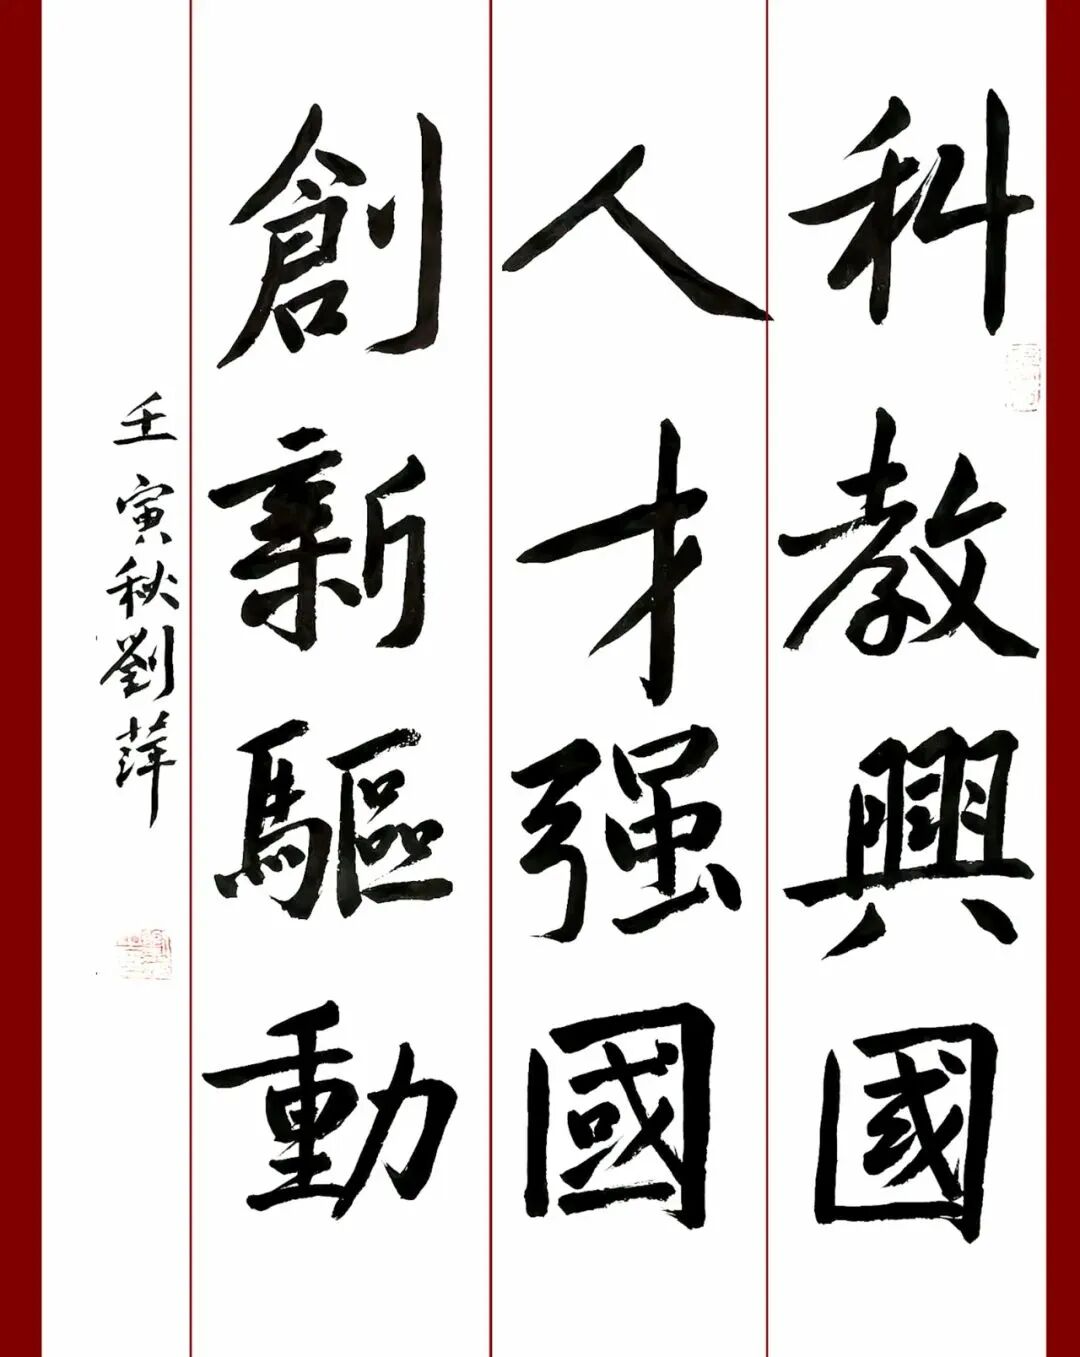 科教興國
人才强國
創新驅動
壬寅秋劉萍